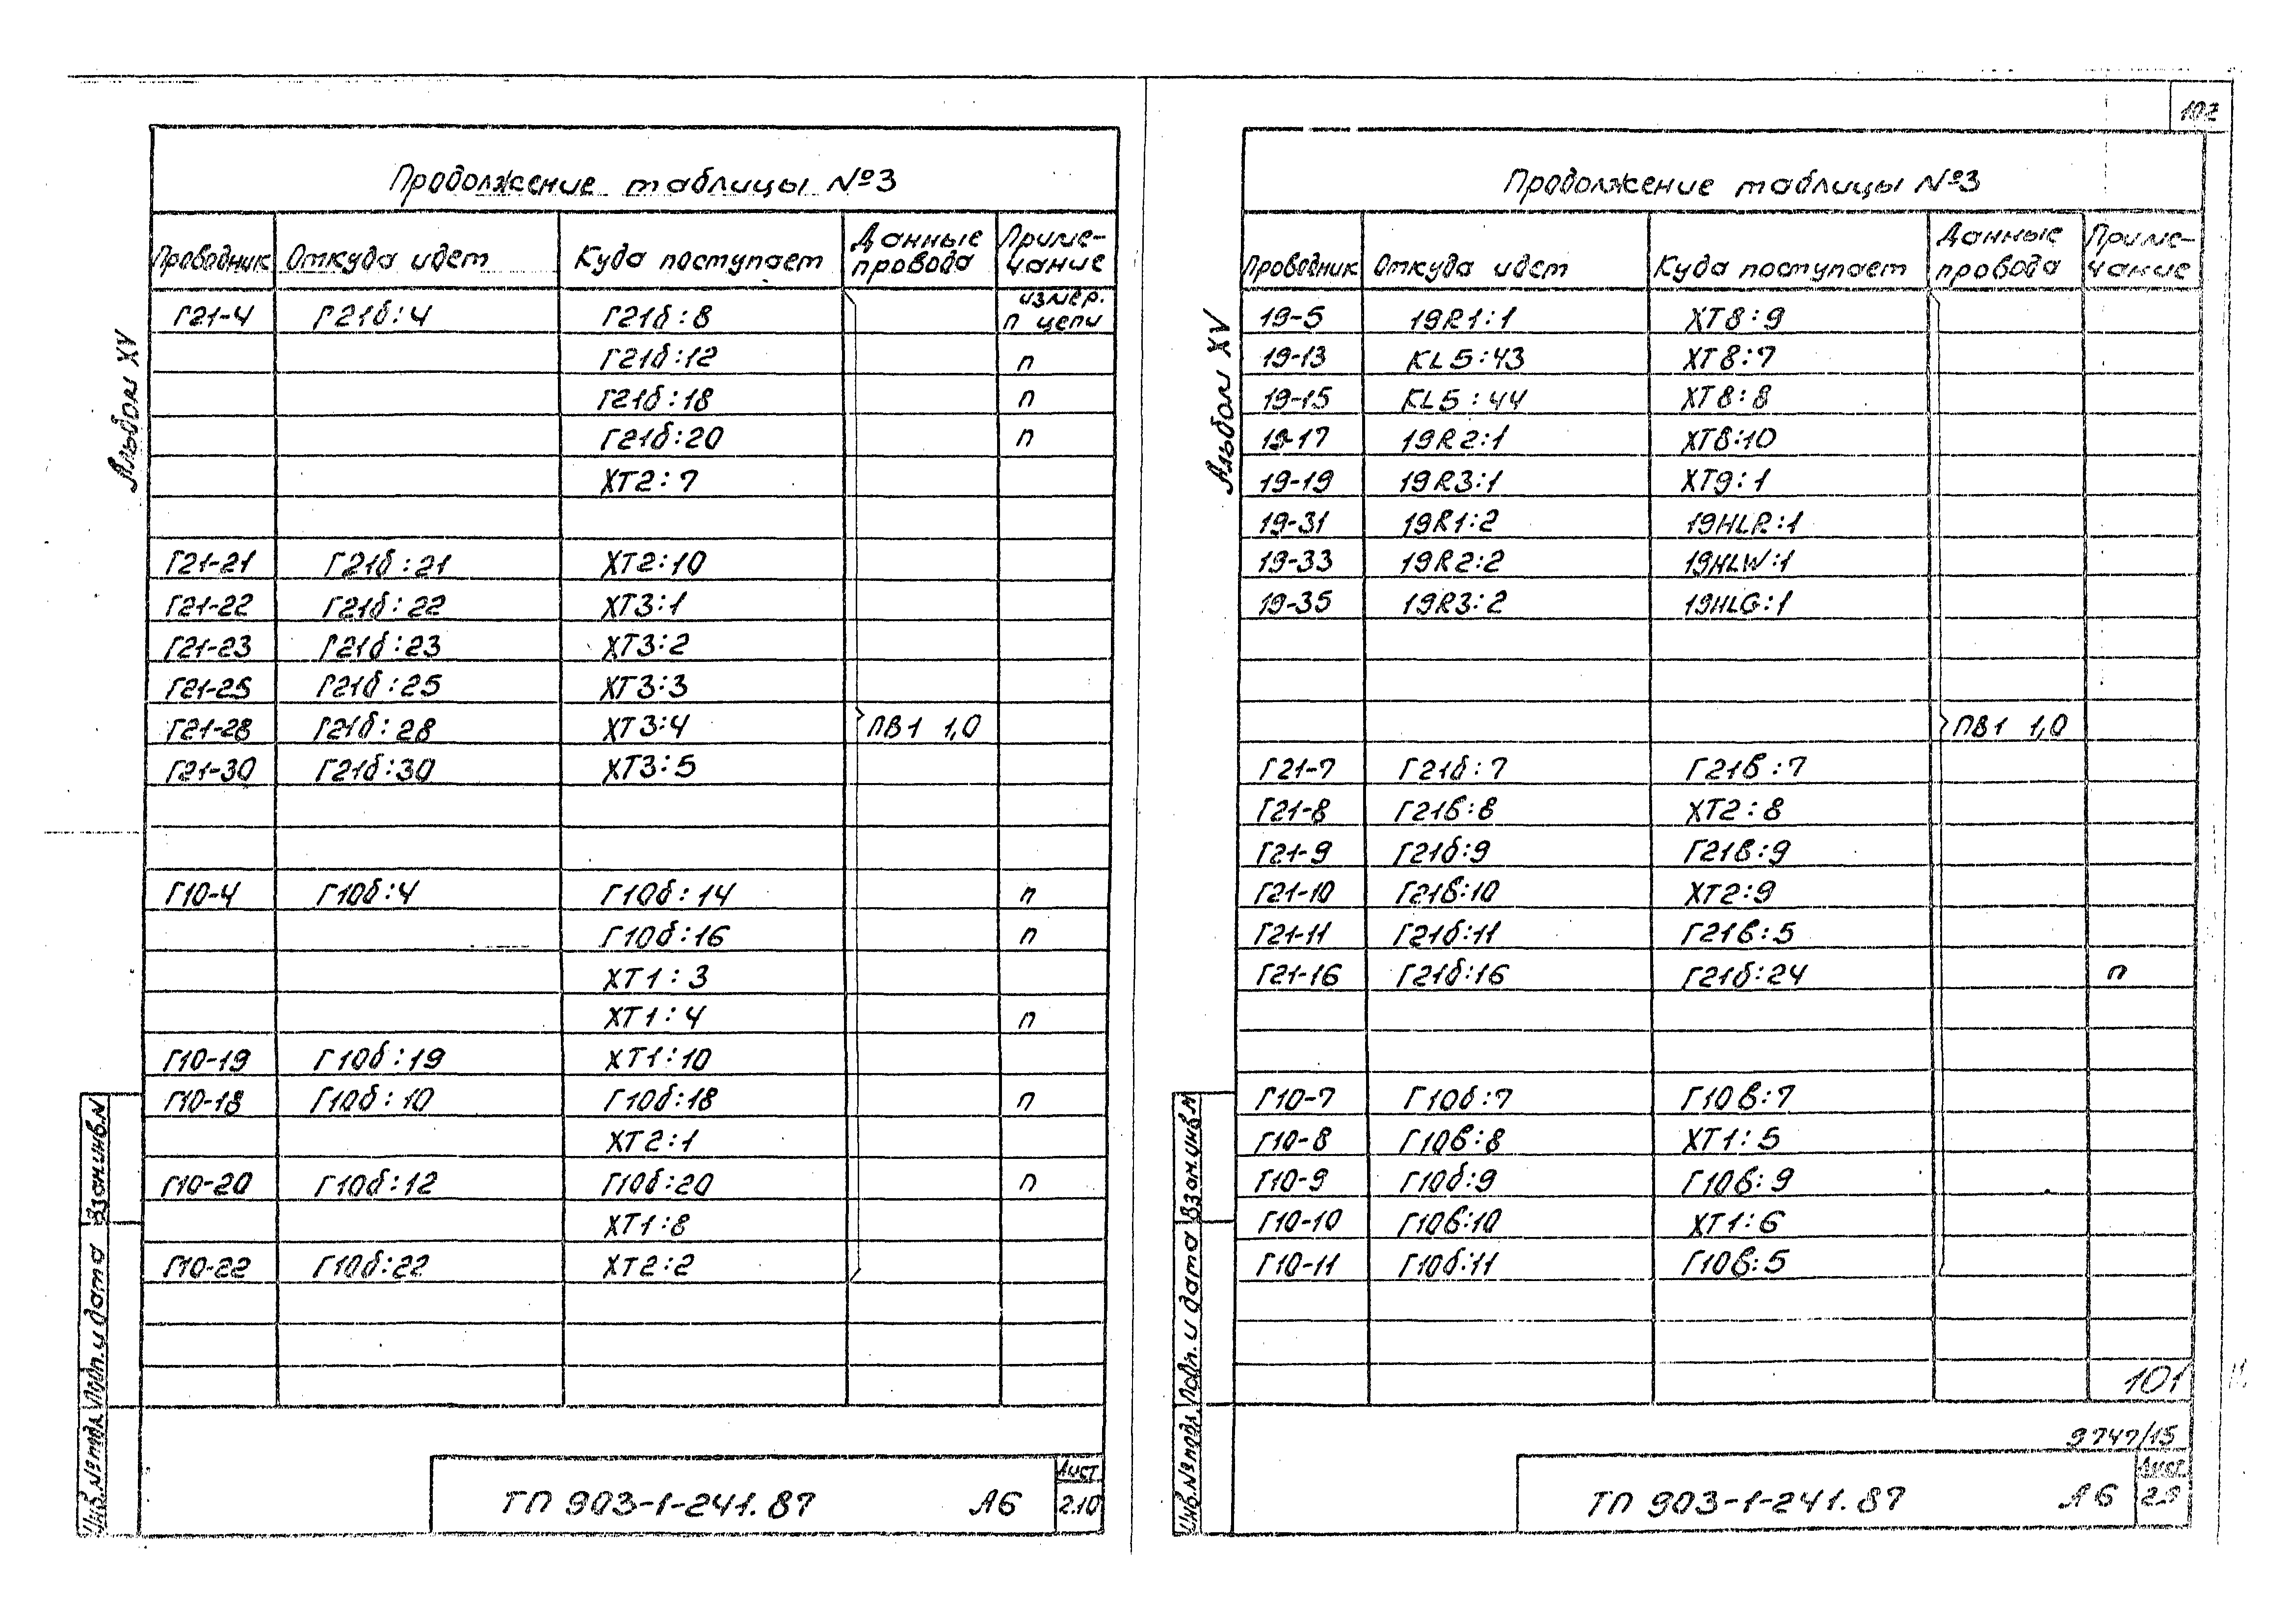 107
Альбом XV
Продолжение таблицы №3
Проводник Откуда идет Куда поступает Данные провода Приме-чание
Г21-4 Г21б:4 Г21б:8 п измер. цепи
Г21б:12 п
Г21б:18 п
Г21б:20 п
XT2:7
Г21-21 Г21б:21 XT2:10
Г21-22 Г21б:22 XT3:1
Г21-23 Г21б:23 XT3:2
Г21-25 Г21б:25 XT3:3
Г21-28 Г21б:28 XT3:4 ПВ1 1,0
Г21-30 Г21б:30 XT3:5
Г10-4 Г10б:4 Г10б:14 п
Г10б:16 п
XT1:3
XT1:4 п
Г10-19 Г10б:19 XT1:10
Г10-18 Г10б:10 Г10б:18 п
XT2:1
Г10-20 Г10б:12 Г10б:20 п
XT1:8
Г10-22 Г10б:22 XT2:2
Взам.инв.N
Подп. и дата
Инв.№подл.
ТП 903-1-241.87 А6
Лист
2.10
Альбом XV
Продолжение таблицы №3
Проводник Откуда идет Куда поступает Данные провода Приме-чание
19-5 19R1:1 XT8:9
19-13 KL5:43 XT8:7
19-15 KL5:44 XT8:8
19-17 19R2:1 XT8:10
19-19 19R3:1 XT9:1
19-31 19R1:2 19HLR:1
19-33 19R2:2 19HLW:1
19-35 19R3:2 19HLG:1
ПВ1 1,0
Г21-7 Г21б:7 Г21в:7
Г21-8 Г21в:8 XT2:8
Г21-9 Г21б:9 Г21в:9
Г21-10 Г21в:10 XT2:9
Г21-11 Г21б:11 Г21в:5
Г21-16 Г21б:16 Г21б:24 п
Г10-7 Г10б:7 Г10в:7
Г10-8 Г10в:8 XT1:5
Г10-9 Г10б:9 Г10в:9
Г10-10 Г10в:10 XT1:6
Г10-11 Г10б:11 Г10в:5
101
9747/15
Взам.инв.N
Подп. и дата
Инв.№подл.
ТП 903-1-241.87 А6
Лист
2.9